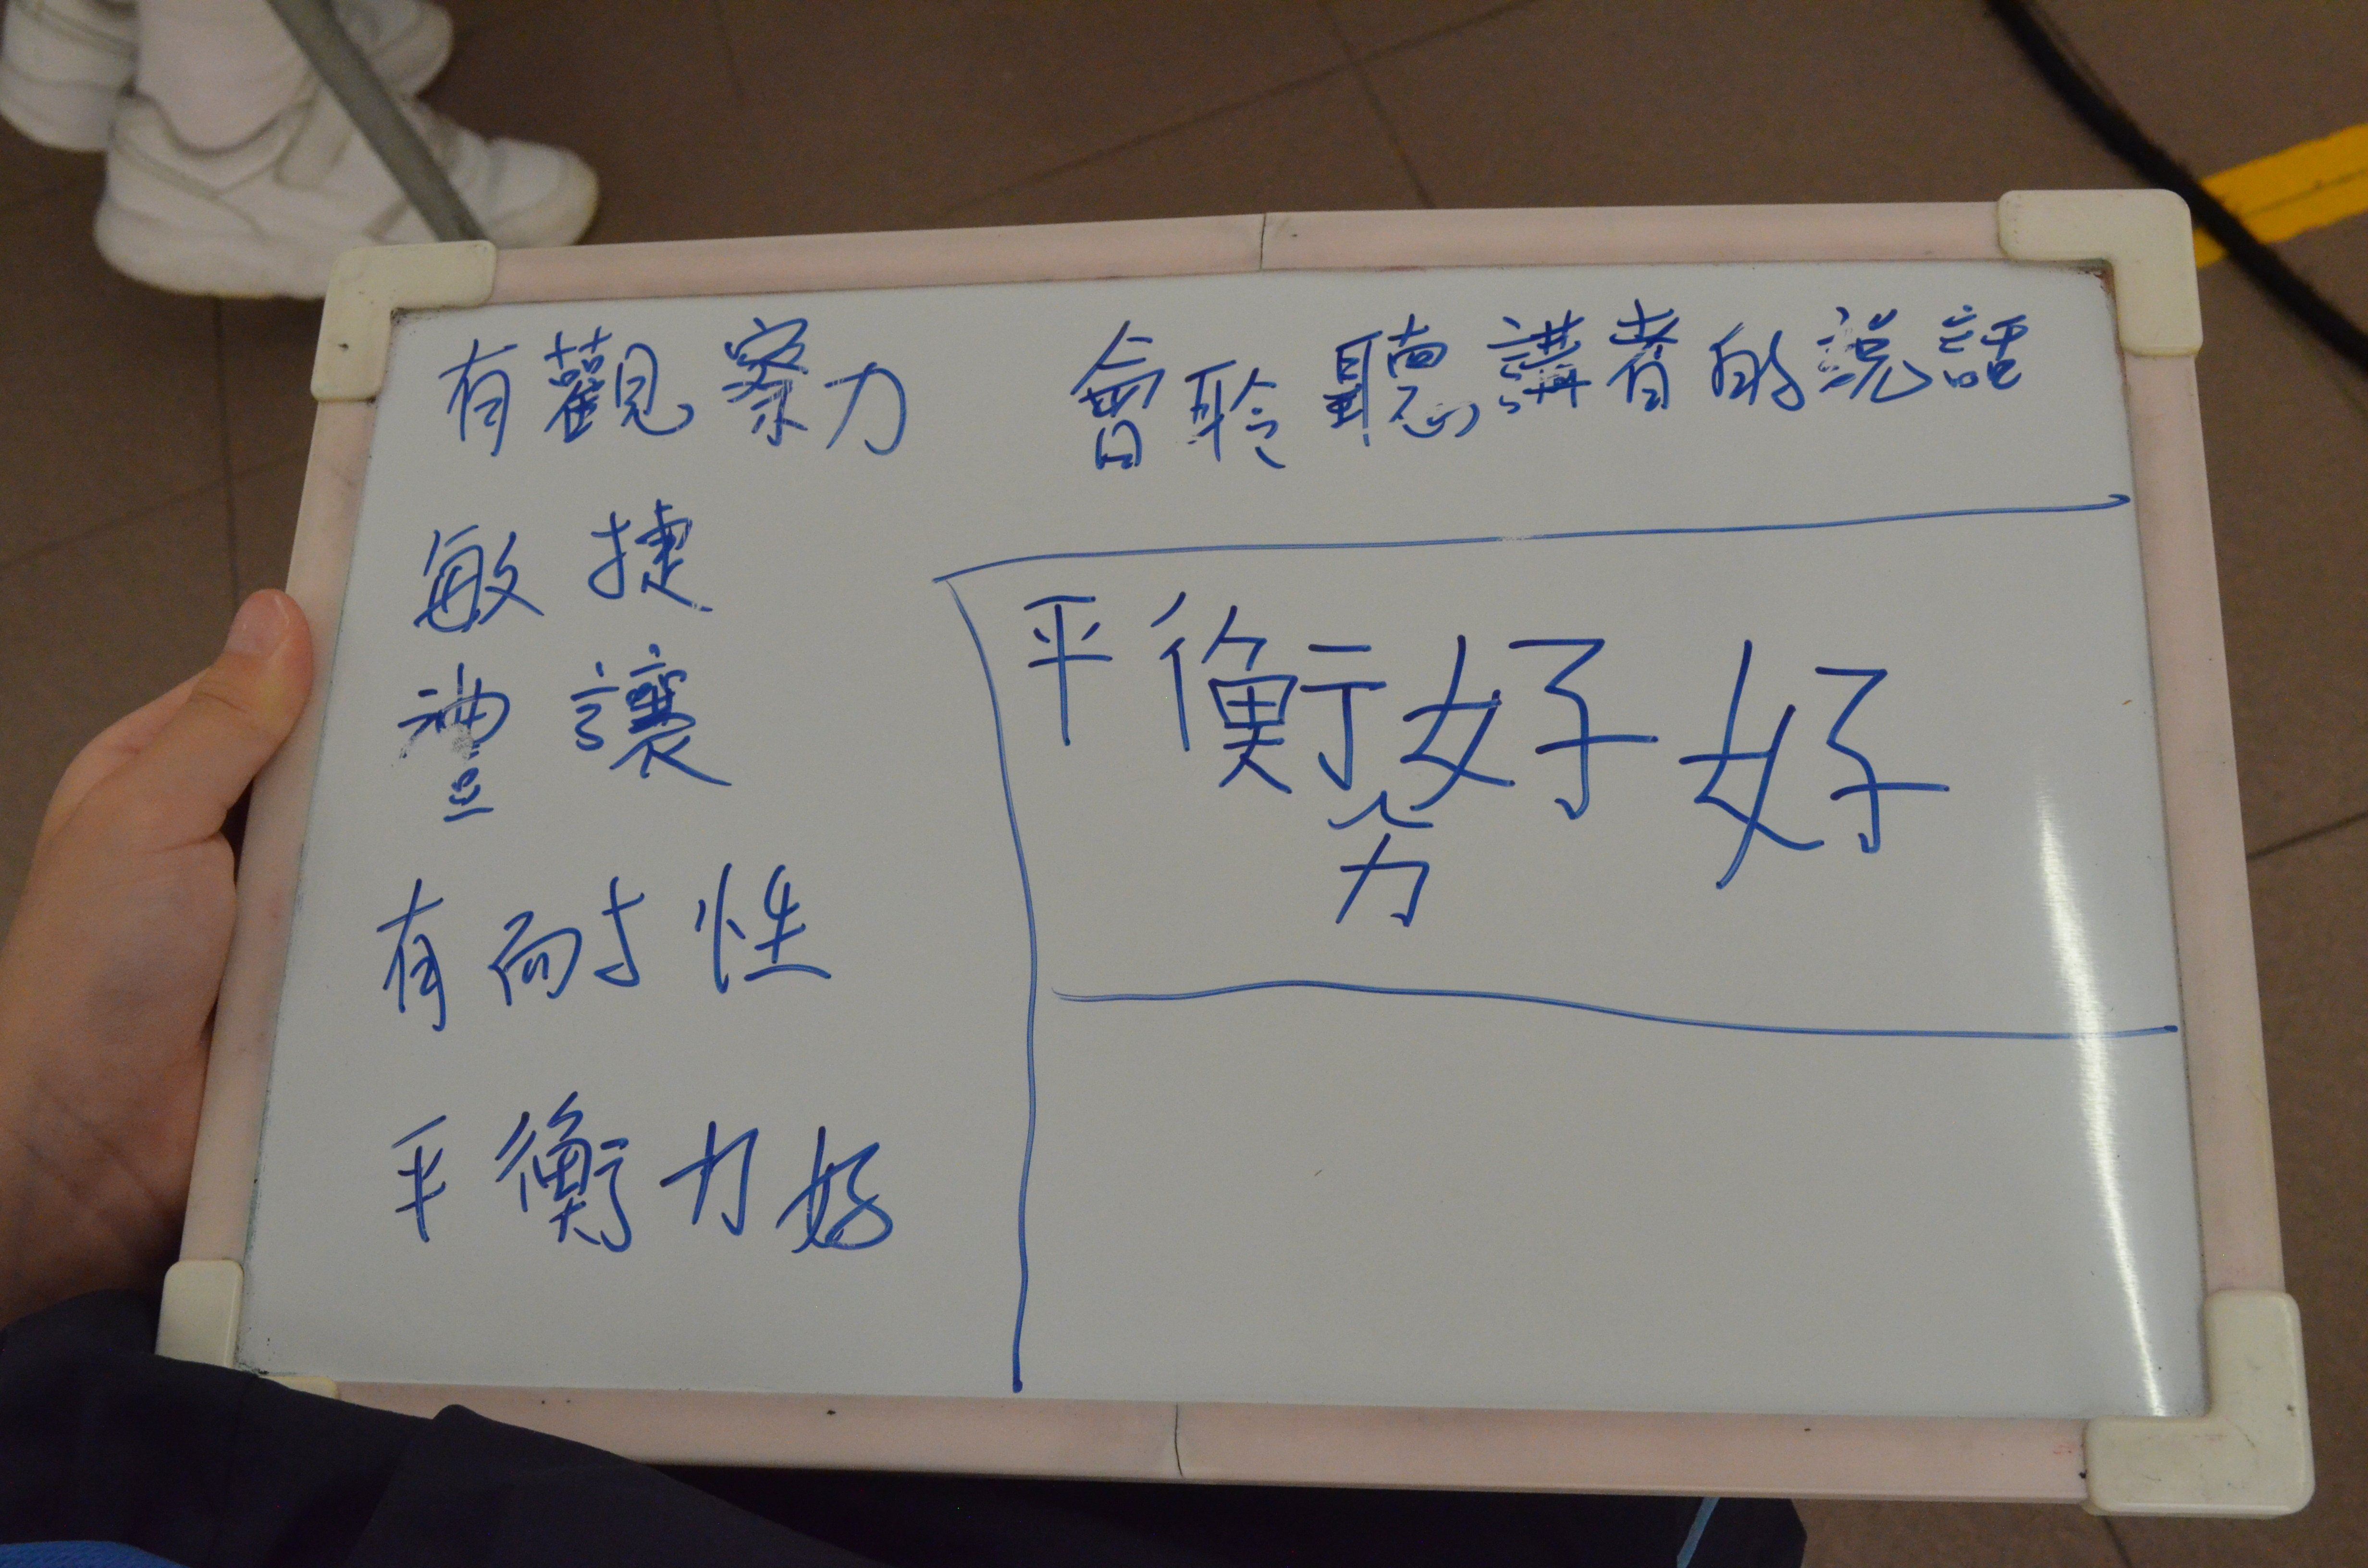 有觀察力
會聆聽講者的説話
敏捷
禮讓
有耐性
平衡力好
平衡好好
力